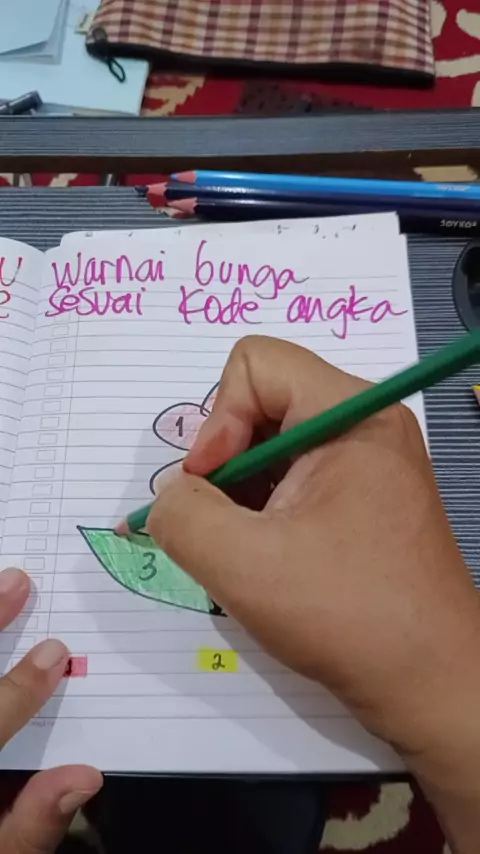 U warnai bunga
e sesuai kode angka
1
3
1
2
SOYKO